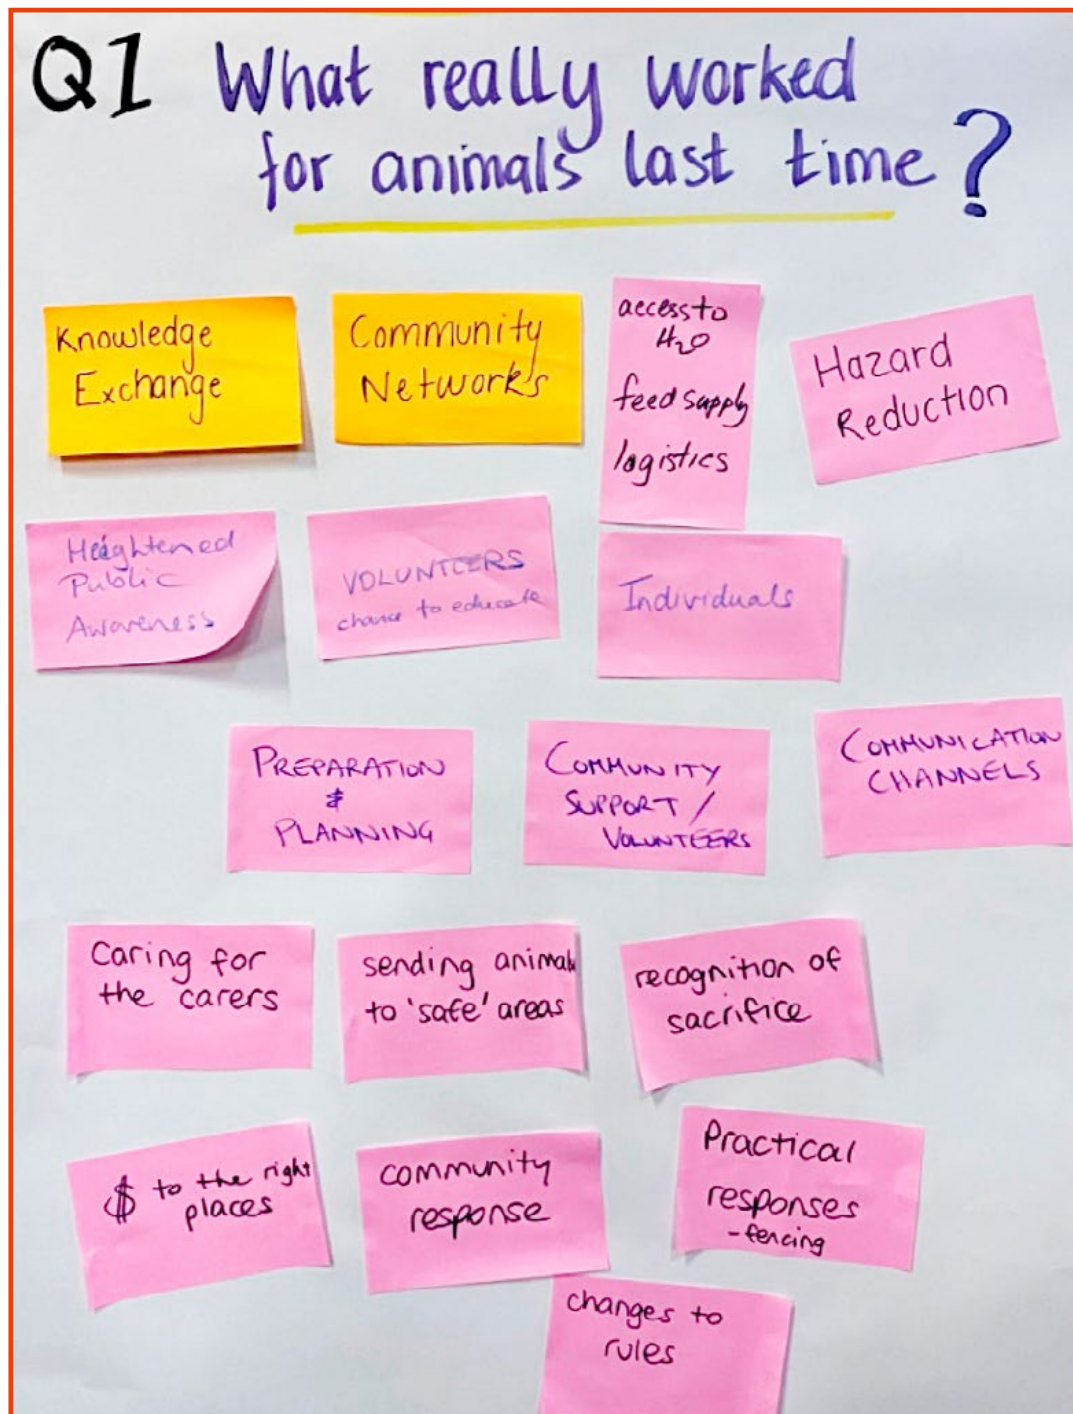 Q1 What really worked
for animals last time?
Knowledge
Exchange
Community
Networks
access to
H2O
feed supply
logistics
Hazard
Reduction
Heightened
Public
Awareness
VOLUNTEERS
chance to educate
Individuals
PREPARATION
&
PLANNING
COMMUNITY
SUPPORT /
VOLUNTEERS
COMMUNICATION
CHANNELS
Caring for
the carers
sending animals
to 'safe' areas
recognition of
sacrifice
$ to the right
places
community
response
Practical
responses
- fencing
changes to
rules